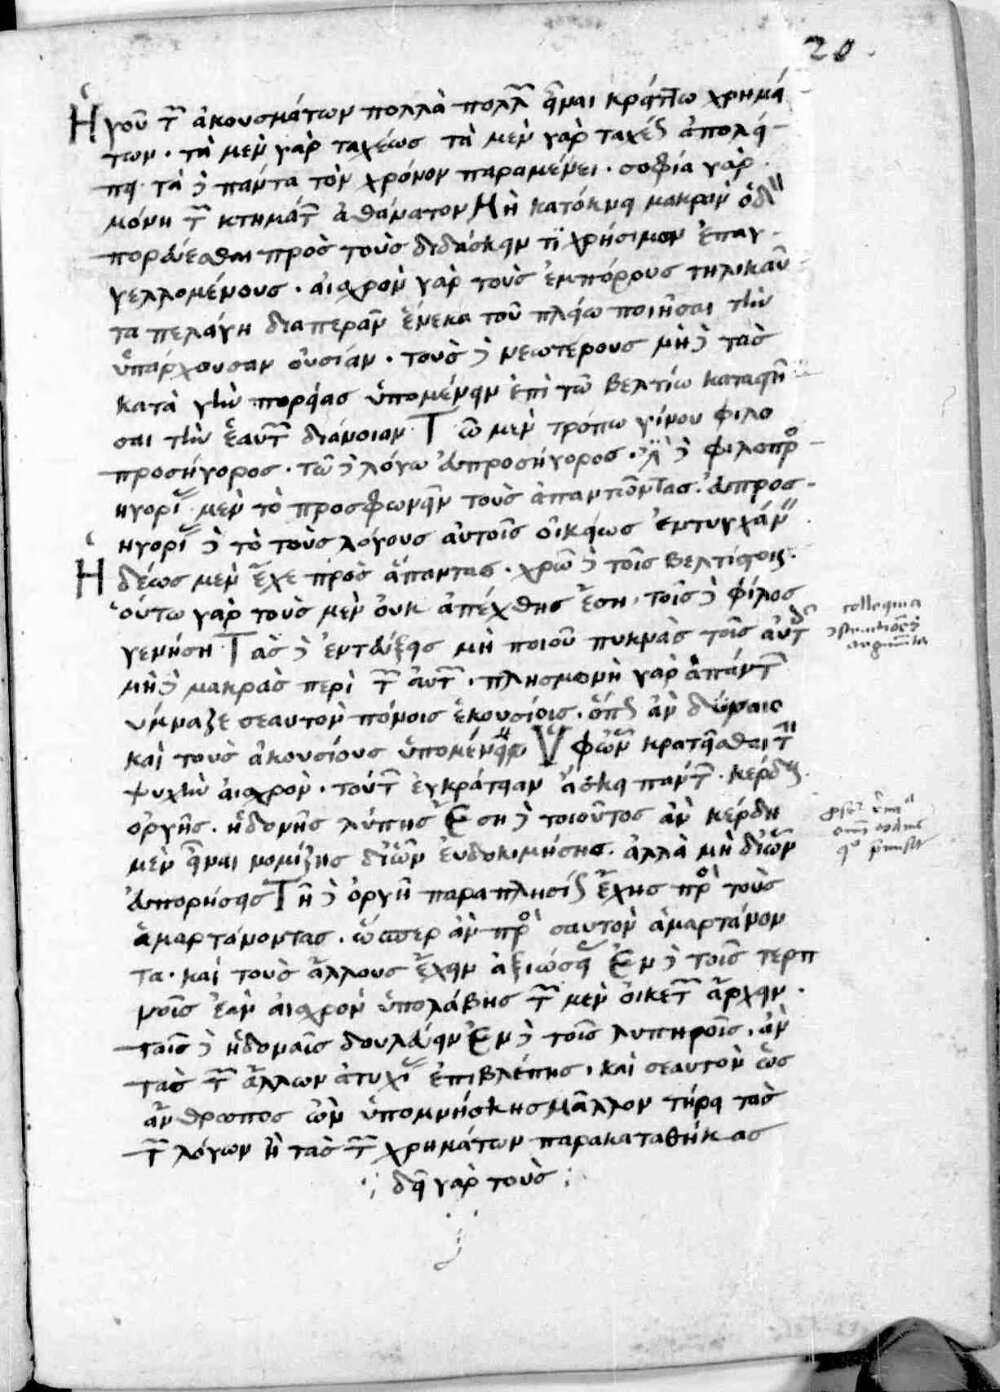 20.
Ἡγοῦ τῶν ἀκουσμάτων πολλὰ πολλῶν εἶναι κρείττω χρημά
των· τὰ μὲν γὰρ ταχέως τὰ μὲν γὰρ ταχέως ἀπολεί
πει· τὰ δὲ πάντα τὸν χρόνον παραμένει· σοφία γὰρ
μόνη τῶν κτημάτων ἀθάνατον Μὴ κατόκνει μακρὰν ὁδὸν
πορεύεσθαι πρὸς τοὺς διδάσκειν τι χρήσιμον ἐπαγ
γελλομένους· αἰσχρὸν γὰρ τοὺς ἐμπόρους τηλικαῦ
τα πελάγη διαπερᾶν ἕνεκα τοῦ πλείω ποιῆσαι τὴν
ὑπάρχουσαν οὐσίαν· τοὺς δὲ νεωτέρους μὴ δὲ τὰς
κατὰ γῆν πορείας ὑπομένειν ἐπὶ τῷ βελτίω καταστῆ
σαι τὴν ἑαυτῶν διάνοιαν Τῷ μὲν τρόπω γίνου φιλο
προσήγορος· τῷ δὲ λόγω εὐπροσήγορος· ἔστι δὲ φιλοπροσ
ηγορίας μὲν τὸ προσφωνεῖν τοὺς ἀπαντῶντας· εὐπροσ
ηγορίας δὲ τὸ τοὺς λόγους αὐτοῖς οἰκείως ἐντυγχάνειν
Ἡδέως μὲν ἔχε πρὸς ἅπαντας· χρῶ δὲ τοῖς βελτίστοις·
οὕτω γὰρ τοὺς μὲν οὐκ ἀπέχθης ἔση· τοῖς δὲ φίλος
γενήση Τὰς δὲ ἐντεύξεις μὴ ποιοῦ πυκνὰς τοῖς αὐτοῖς
μὴ δὲ μακρὰς περὶ τῶν αὐτῶν· πλησμονὴ γὰρ ἁπάντων
γύμναζε σεαυτὸν πόνοις ἑκουσίοις· ὅπως ἂν δύναιο
καὶ τοὺς ἀκουσίους ὑπομένειν Ὑφ' ὧν κρατεῖσθαι τὴν
ψυχὴν αἰσχρὸν· τούτων ἐγκράτειαν ἄσκει πάντων· κέρδους
ὀργῆς· ἡδονῆς λύπης Ἔση δὲ τοιοῦτος ἂν κέρδη
μὲν εἶναι νομίζης δι' ὧν εὐδοκιμήσης· ἀλλὰ μὴ δι' ὧν
εὐπορήσεις Τῇ δὲ ὀργῇ παραπλησίως ἔχης πρὸς τοὺς
ἁμαρτάνοντας· ὥσπερ ἂν πρὸς σαυτὸν ἁμαρτάνον
τα· καὶ τοὺς ἄλλους ἔχειν ἀξιώσεις Ἐν δὲ τοῖς τερπ
νοῖς ἐὰν αἰσχρὸν ὑπολάβης τῶν μὲν οἰκετῶν ἄρχειν·
ταῖς δὲ ἡδοναῖς δουλεύειν Ἐν δὲ τοῖς λυπηροῖς· ἂν
τὰς τῶν ἄλλων ἀτυχίας ἐπιβλέπης· καὶ σεαυτὸν ὡς
ἄνθρωπος ὢν ὑπομνήσκης Μᾶλλον τήρει τὰς
τῶν λόγων ἢ τὰς τῶν χρημάτων παρακαταθήκας
δεῖ γὰρ τοὺς
colloquia